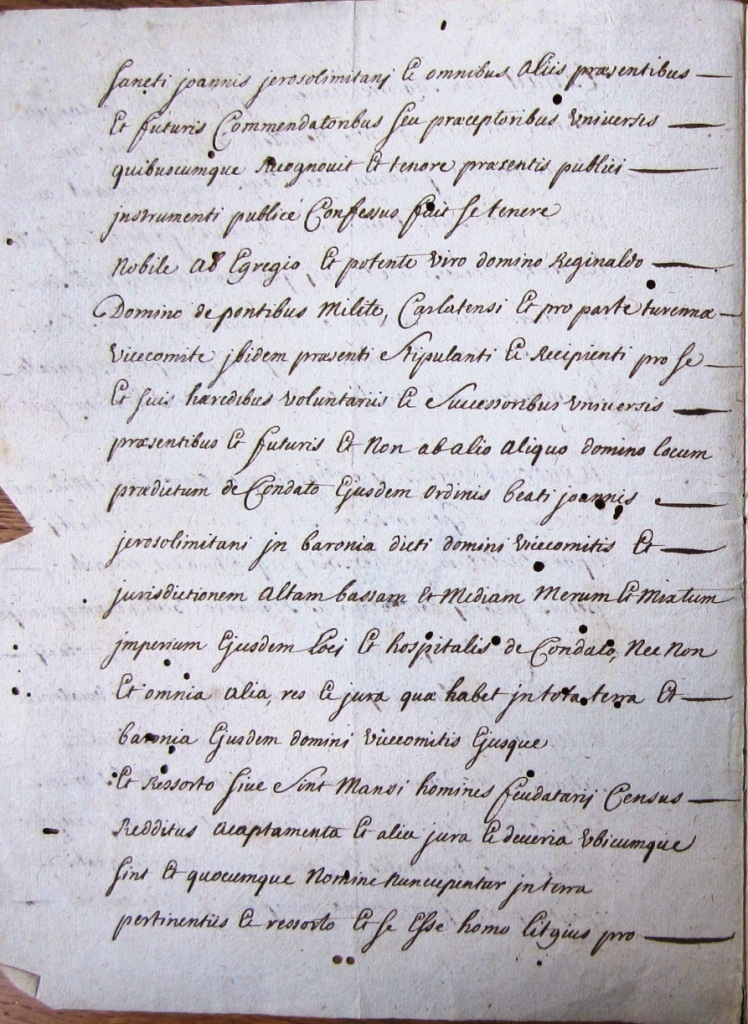 sancti joannis jerosolimitanj Et omnibus aliis præsentibus
Et futuris Commendatoribus seu præceptoribus Universis
quibuscumque Recognovit Et tenore præsentis publici
jnstrumenti publicé Confessus fuit se tenere
Nobile ab Egregio Et potente viro domino Reginaldo
Domino de pontibus Milite, Carlatensi Et pro parte turennæ
Vicecomite jbidem præsenti Stipulanti Et Recipienti pro se
Et suis hæredibus voluntariis Et Successoribus Universis
præsentibus Et futuris Et Non ab alio aliquo domino locum
prædictum de Condato Ejusdem ordinis beati joannis
jerosolimitani jn baronia dicti domini vicecomitis Et
jurisdictionem altam bassam et Mediam Merum Et Mixtum
jmperium Ejusdem Loci Et hospitalis de Condato, Nec Non
Et omnia alia, res Et jura quæ habet jn tota terra Et
baronia Ejusdem domini vicecomitis Ejusque
Et Ressorto sive Sint Mansi homines feudatarij Census
Redditus acaptamenta Et alia jura Et deveria Vbicumque
sint Et quocumque Nomine Nuncupentur jn terra
pertinentiis Et ressorto Et se Esse homo litgius pro